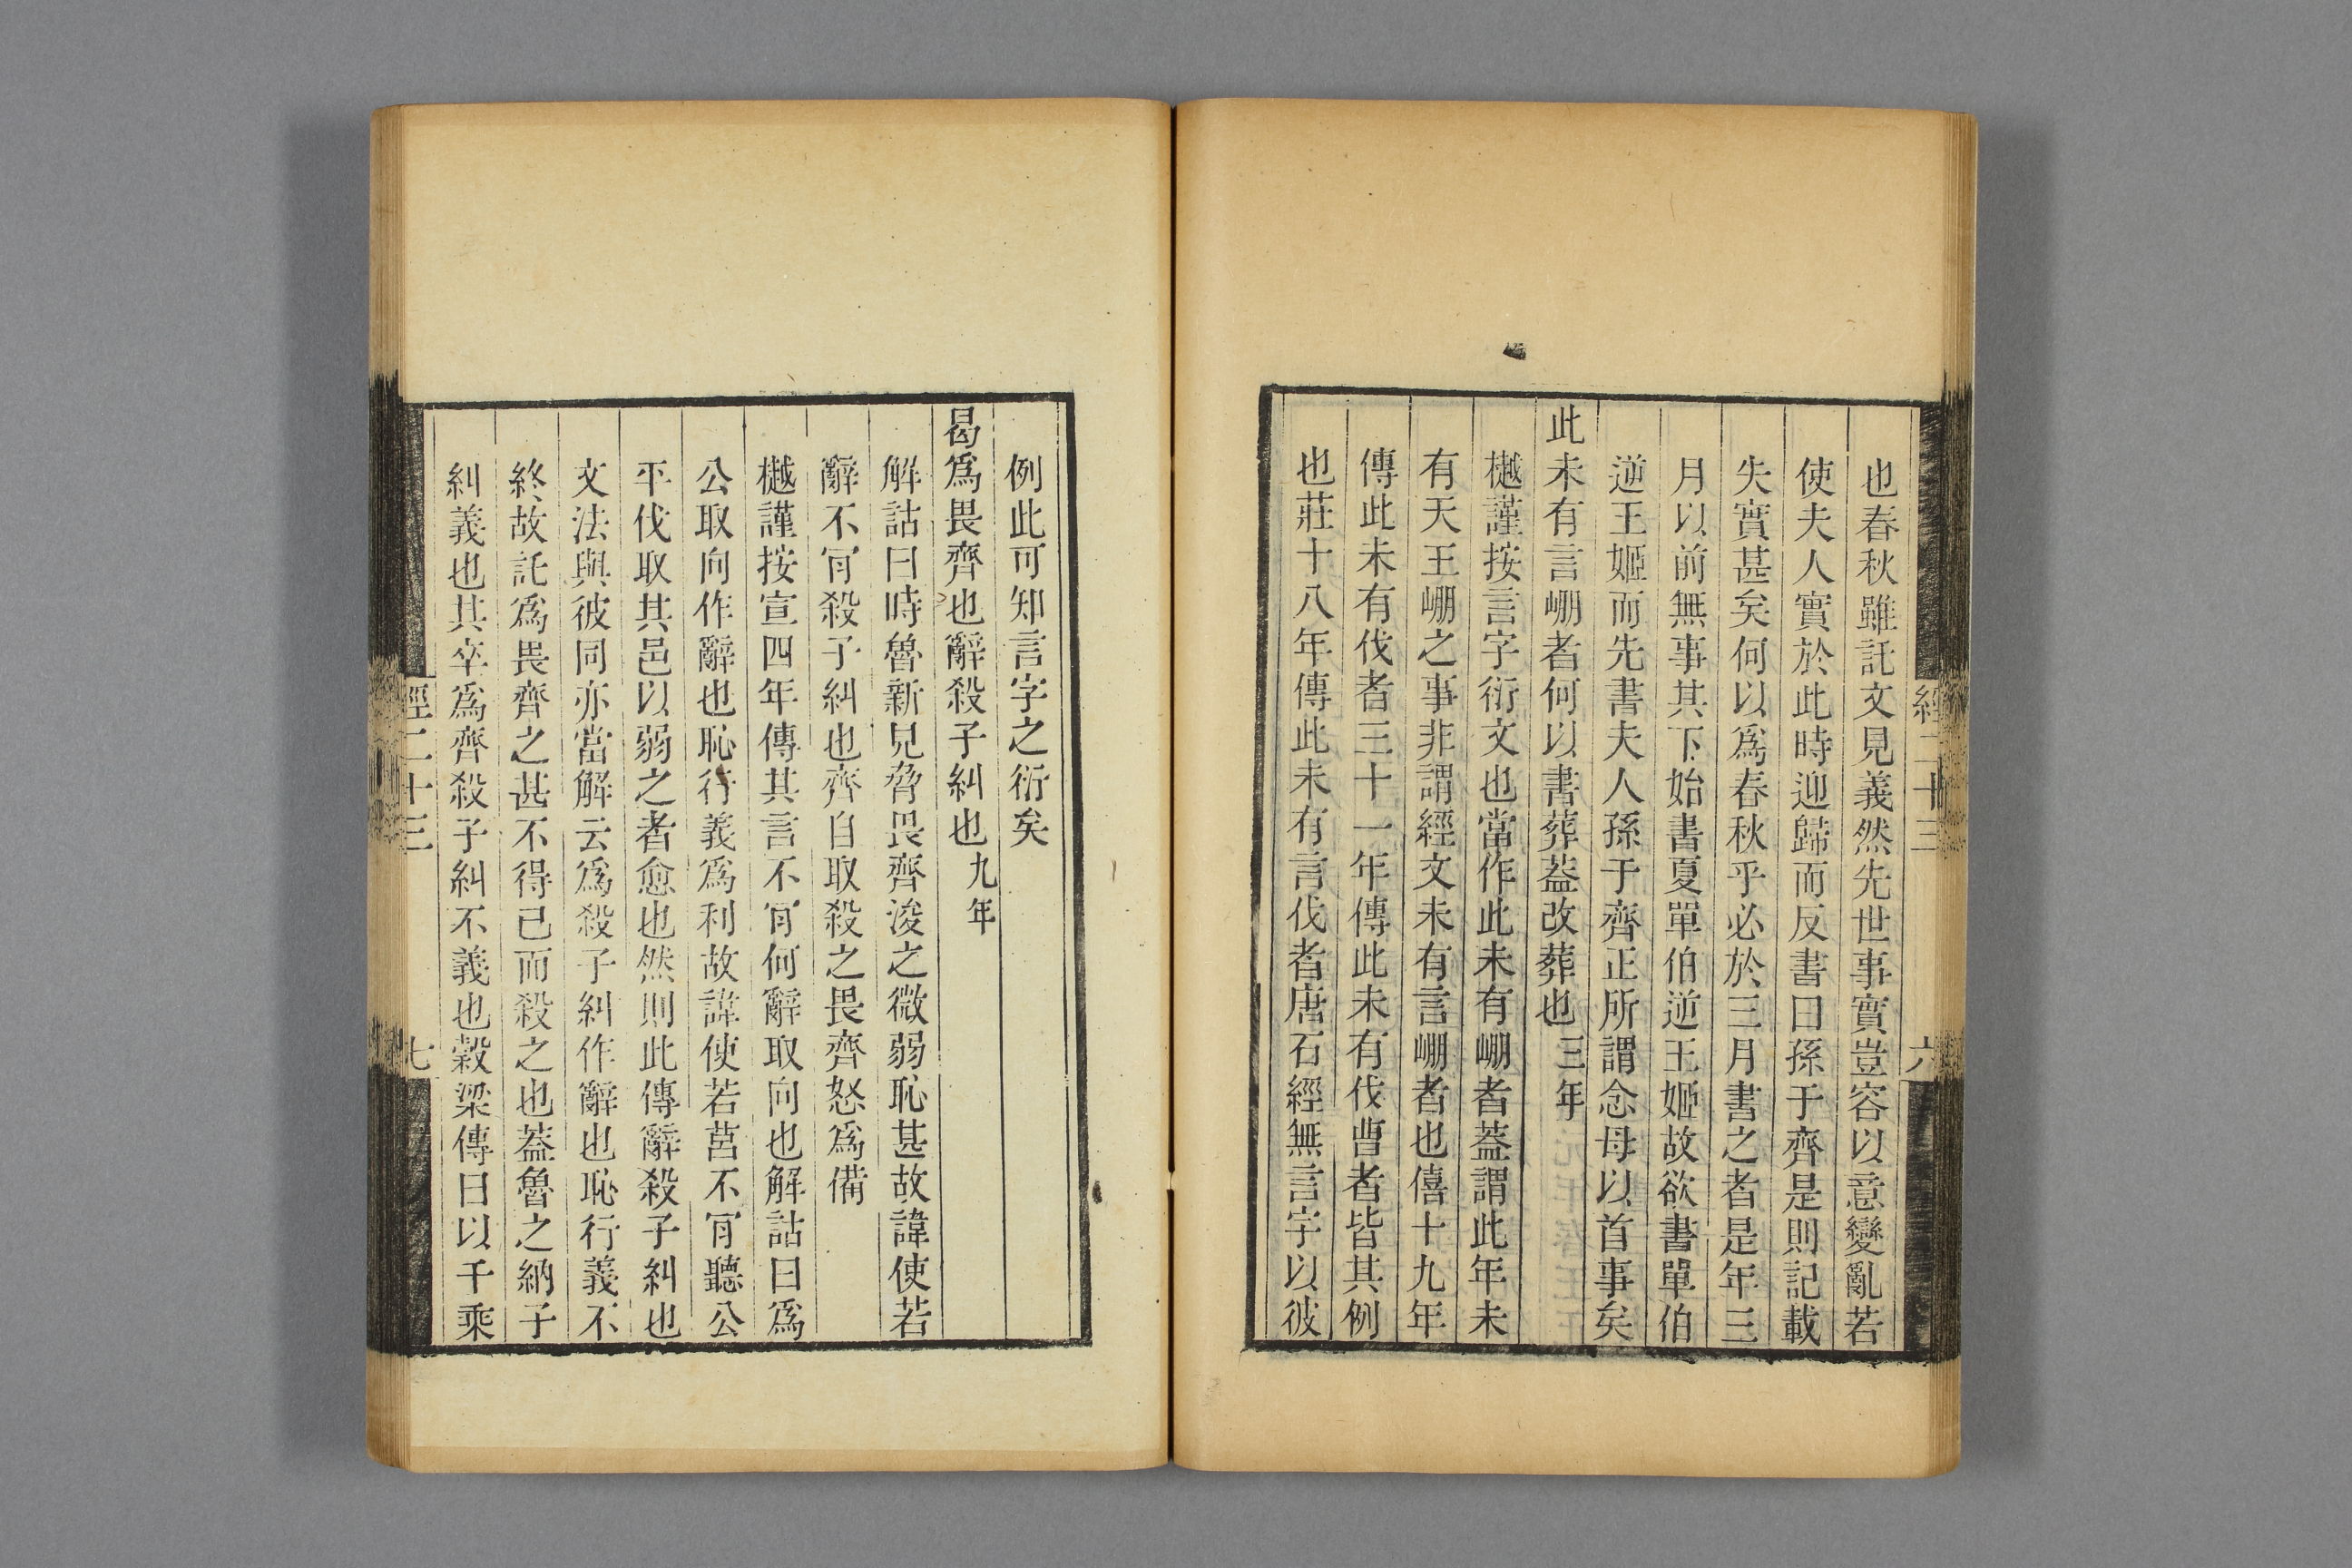 經二十三
六
也春秋雖託文見義然先世事實豈容以意變亂若
使夫人實於此時迎歸而反書曰孫于齊是則記載
失實甚矣何以爲春秋乎必於三月書之者是年三
月以前無事其下始書夏單伯逆王姬故欲書單伯
逆王姬而先書夫人孫于齊正所謂念母以首事矣
此未有言崩者何以書葬葢改葬也三年
樾謹按言字衍文也當作此未有崩者葢謂此年未
有天王崩之事非謂經文未有言崩者也僖十九年
傳此未有伐者三十一年傳此未有伐曹者皆其例
也莊十八年傳此未有言伐者唐石經無言字以彼
例此可知言字之衍矣
曷爲畏齊也辭殺子糾也九年
解詁曰時魯新見脅畏齊浚之微弱恥甚故諱使若
辭不肎殺子糾也齊自取殺之畏齊怒爲備
樾謹按宣四年傳其言不肎何辭取向也解詁曰爲
公取向作辭也恥行義爲利故諱使若莒不肎聽公
平伐取其邑以弱之者愈也然則此傳辭殺子糾也
文法與彼同亦當解云爲殺子糾作辭也恥行義不
終故託爲畏齊之甚不得已而殺之也葢魯之納子
糾義也其卒爲齊殺子糾不義也穀梁傳曰以千乘
經二十三
七